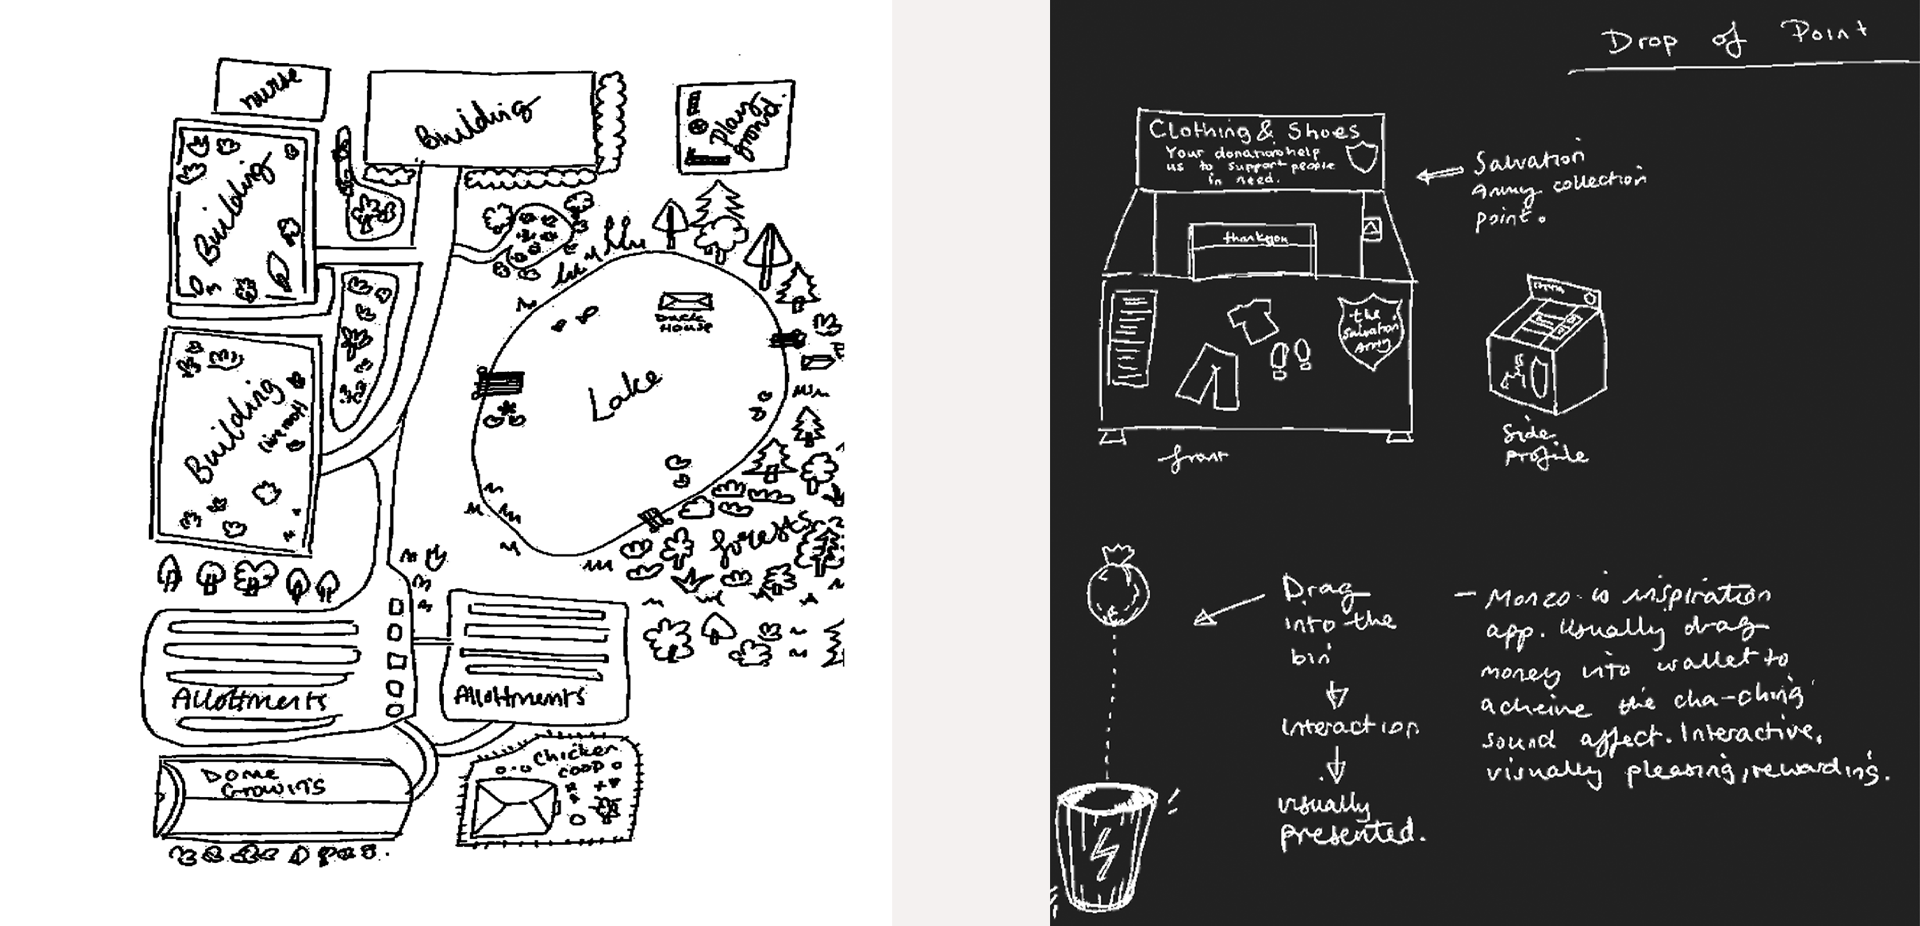 nurse
Building
Play
ground.
Building
Duck
House
Lake
Building
forests
Allottments
Allottments
Dome
Growing
Chicken
coop
Drop of Point
Clothing & Shoes
Your donations help
us to support people
in need.
Salvation
Army collection
point.
thankyou
the
Salvation
Army
front
Side
profile
Drag
into the
bin
Interaction
visually
presented.
- Monzo is inspiration
app. Usually drag
money into wallet to
acheive the cha-ching
sound affect. Interactive,
visually pleasing, rewarding.